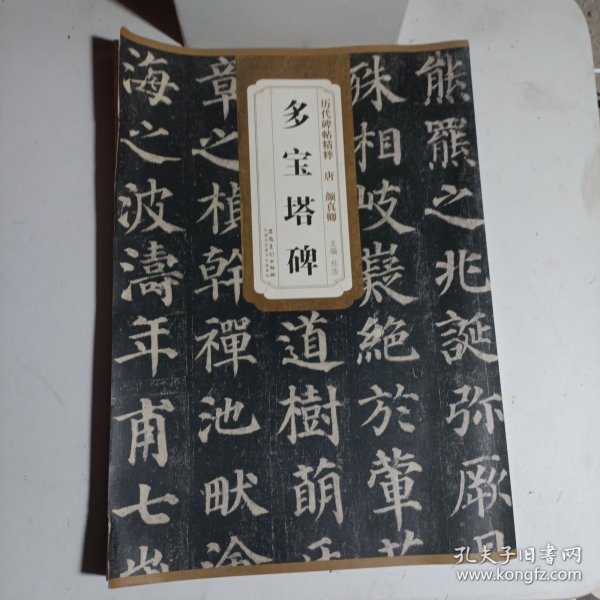 历代碑帖精粹 唐 颜真卿
多宝塔碑
主编 杜浩
安徽美术出版社
熊羆之兆誕弥厥
殊相岐嶷絶於葷
道樹萌
章之楨幹禪池畎
海之波濤年甫七
孔夫子旧书网
www.kongfz.com